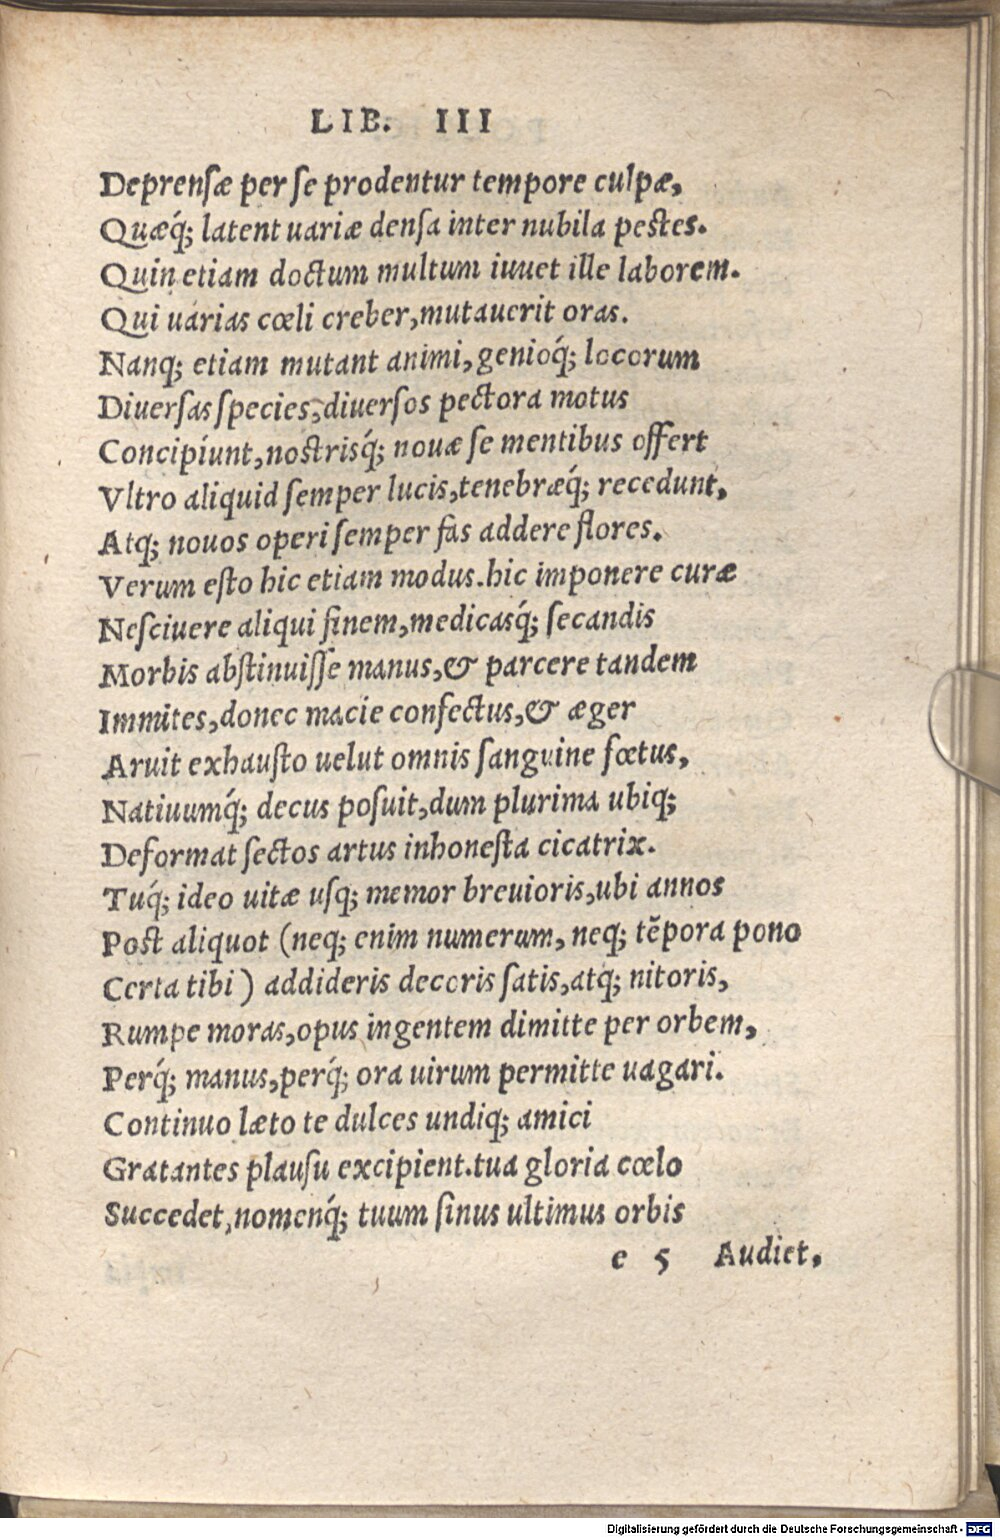 LIB. III
Deprensæ per se prodentur tempore culpæ,
Quæq́; latent uariæ densa inter nubila pestes.
Quin etiam doctum multum iuuet ille laborem.
Qui uarias cœli creber, mutauerit oras.
Nanq; etiam mutant animi, genioq́; locorum
Diuersas species, diuersos pectora motus
Concipiunt, nostrisq́; nouæ se mentibus offert
Vltro aliquid semper lucis, tenebræq́; recedunt,
Atq; nouos operi semper fas addere flores.
Verum esto hic etiam modus. hic imponere curæ
Nesciuere aliqui finem, medicasq́; secandis
Morbis abstinuisse manus, & parcere tandem
Immites, donec macie confectus, & æger
Aruit exhausto uelut omnis sanguine fœtus,
Natiuumq́; decus posuit, dum plurima ubiq;
Deformat sectos artus inhonesta cicatrix.
Tuq́; ideo uitæ usq; memor breuioris, ubi annos
Post aliquot (neq; enim numerum, neq; tẽpora pono
Certa tibi) addideris decoris satis, atq; nitoris,
Rumpe moras, opus ingentem dimitte per orbem,
Perq́; manus, perq́; ora uirum permitte uagari.
Continuo læto te dulces undiq; amici
Gratantes plausu excipient. tua gloria cœlo
Succedet, nomenq́; tuum sinus ultimus orbis
e 5 Audiet,
Digitalisierung gefördert durch die Deutsche Forschungsgemeinschaft - DFG